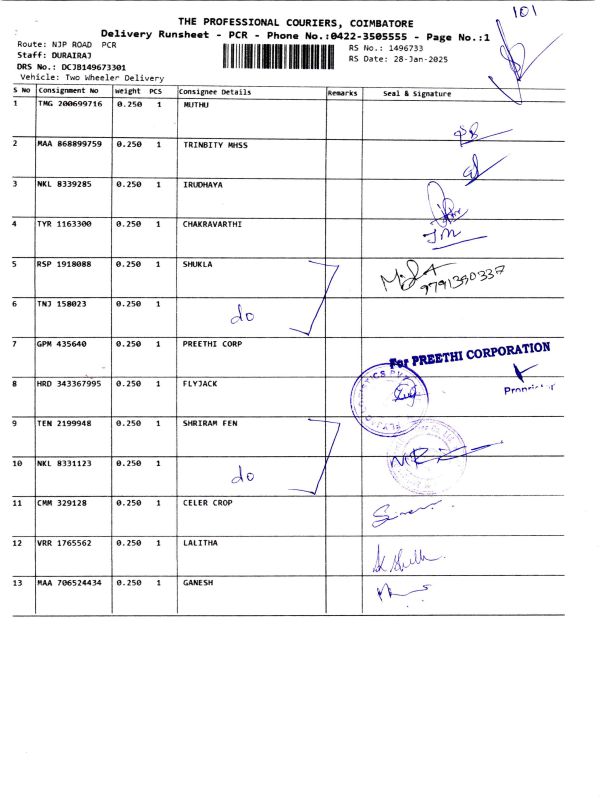 101
THE PROFESSIONAL COURIERS, COIMBATORE
Delivery Runsheet - PCR - Phone No.:0422-3505555 - Page No.:1
Route: NJP ROAD PCR
RS No.: 1496733
Staff: DURAIRAJ
RS Date: 28-Jan-2025
DRS No.: DCJB149673301
Vehicle: Two Wheeler Delivery
S No Consignment No weight PCS Consignee Details Remarks Seal & Signature
1 TMG 200699716 0.250 1 MUTHU
2 MAA 868899759 0.250 1 TRINBITY MHSS
3 NKL 8339285 0.250 1 IRUDHAYA
4 TYR 1163300 0.250 1 CHAKRAVARTHI
5 RSP 1918088 0.250 1 SHUKLA
9791390337
6 TNJ 158023 0.250 1 do
7 GPM 435640 0.250 1 PREETHI CORP
For PREETHI CORPORATION
Proprietor
8 HRD 343367995 0.250 1 FLYJACK
9 TEN 2199948 0.250 1 SHRIRAM FEN
10 NKL 8331123 0.250 1 do
11 CMM 329128 0.250 1 CELER CROP
12 VRR 1765562 0.250 1 LALITHA
13 MAA 706524434 0.250 1 GANESH